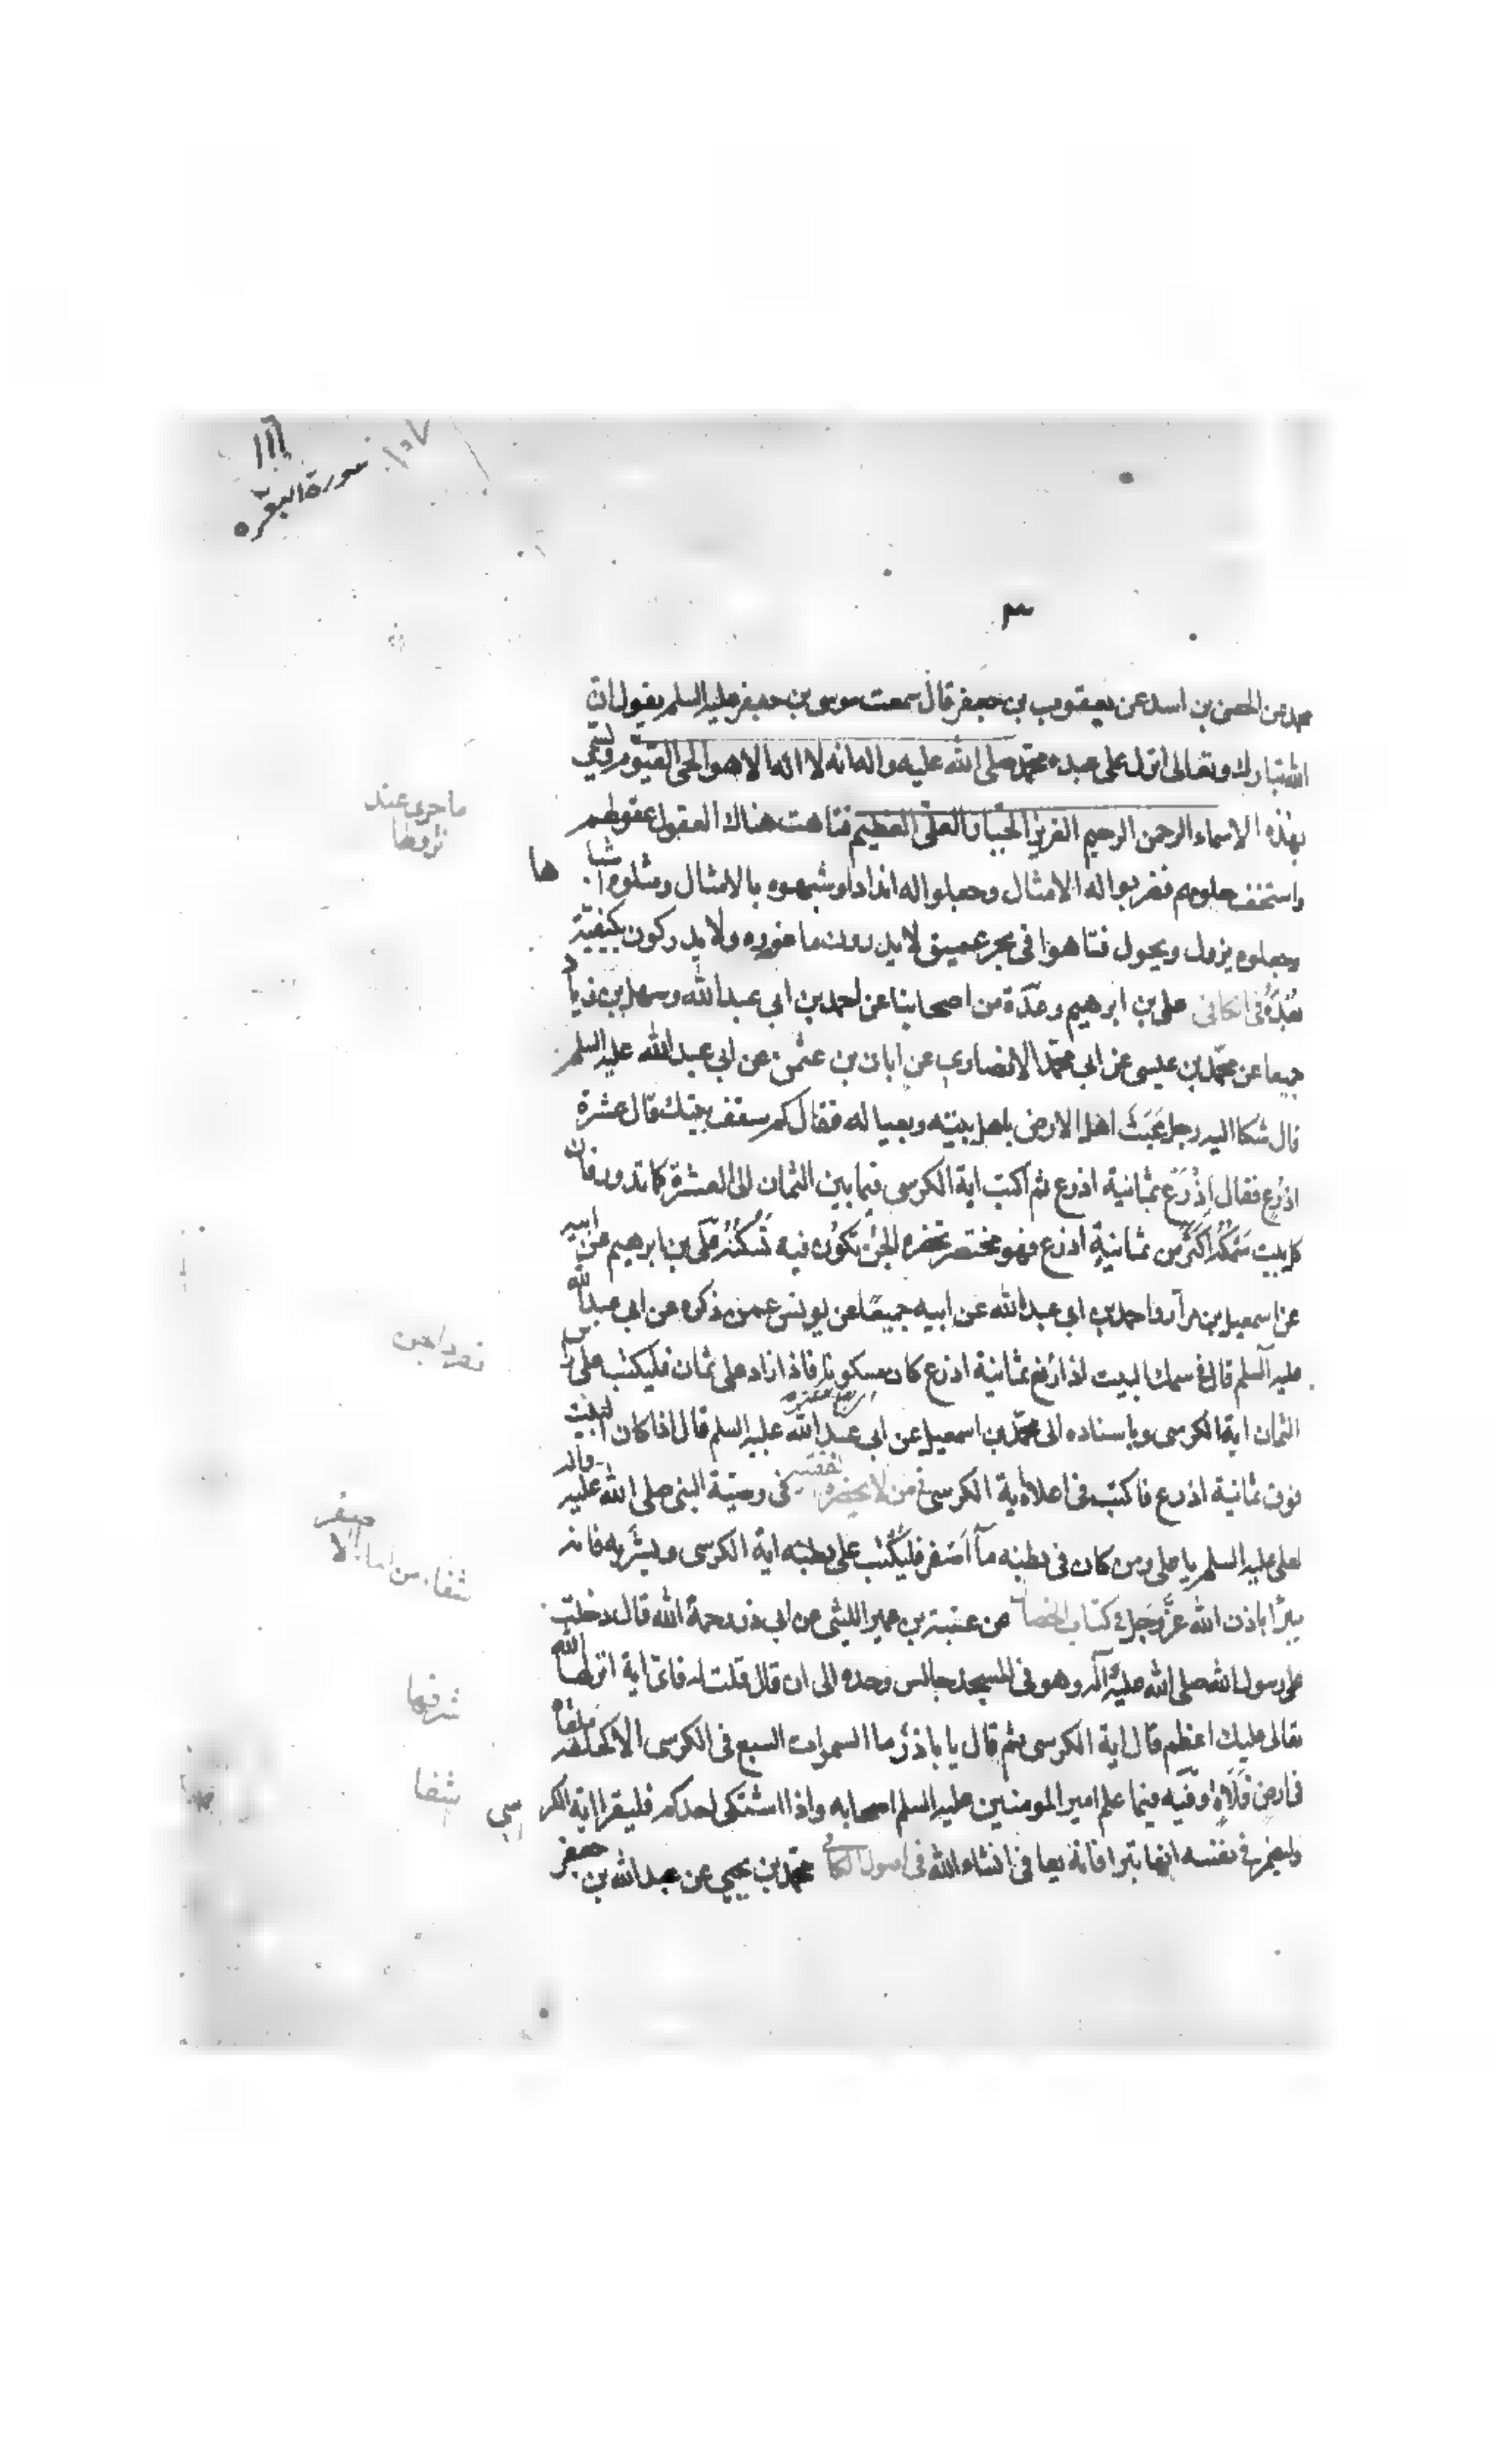 ١١١
سورة البقره
١٠٧
٣
محمد عن الحسن بن اسد عن يعقوب بن جعفر قال سمعت موسى بن جعفر عليه السلم يقول ان
الله تبارك وتعالى انزل على عبده محمد صلى الله عليه واله انه لا اله الا هو الحى القيوم وتسمى
بهذه الاسماء الرحمن الرحيم العزيز الجبار العلى العظيم فتاهت هنالك العقول عقولهم
واستخف حلومهم فضربوا له الامثال وجعلوا له اندادا وشبهوه بالامثال ومثلوه اشباها
وجعلوه يزول ويحول فتاهوا فى بحر عميق لا يدرون ما غوره ولا يدركون بكيفية
بُعْدَهُ فى الكافى على بن ابرهيم وعدّة من اصحابنا عن احمد بن ابى عبد الله وسهل بن زياد
جميعا عن محمّد بن عيسى عن ابى محمّد الانصارى عن ابان بن عثمن عن ابى عبد الله عليه السلم
قال شكا اليه رجل عَبَثَ اهل الارض باهل بيته وبعياله فقال كم سقف بيتك قال عشرة
اذرع فقال اذرع ثمانية اذرع ثم اكتب اية الكرسى فيما بين الثمان الى العشرة كما تدور فان
كل بيت سَمْكُهُ اكثر من ثمانية اذرع فهو محتضر تحضره الجن تكون فيه تَسْكُنُهُ على بن ابرهيم عن ابيه
عن اسمعيل بن مرار واحمد بن ابى عبد الله عن ابيه جميعًا عن يونس عمن ذكره عن ابى عبد الله
عليه السلم قال فى سمك البيت اذا رفع ثمانية اذرع كان مسكونا فاذا زاد على ثمان فليكتب على راس
الثمان اية الكرسى وباسناده الى محمّد بن اسمعيل عن ابى عبد الله عليه السلم قال اذا كان البيت
فوق ثمانية اذرع فاكتب فى اعلاه اية الكرسى فى من لا يحضره الفقيه فى وصية النبى صلى الله عليه واله
لعلى عليه السلم يا على ومن كان فى بطنه ماآ اَصفر فليكتب على بطنه اية الكرسى ويشربه فانه
يبرا باذن الله عزّ وجلّ فى كتاب الخصال عن عتبة بن عمير الليثى عن ابى ذر رحمة الله قال دخلت
على رسول الله صلى الله عليه وآله وهو فى المسجد جالس وحده الى ان قال قلت له فاى اية انزلها الله
تعالى عليك اعظم قال اية الكرسى ثم قال يا باذر ما السموات السبع فى الكرسى الا كحلقة ملقاة
فى ارض فَلَاةٍ وفيه فيما علم امير المومنين عليه السلم اصحابه واذا اشتكى احدكم فليقرا اية الكرسى
وليضمر فى نفسه انها تبرا فانه يعافى انشاء الله فى اصول الكافى محمّد بن يحيى عن عبد الله بن جعفر
ما جرى عند
نزولها
شفاء من
شرفها
شفا